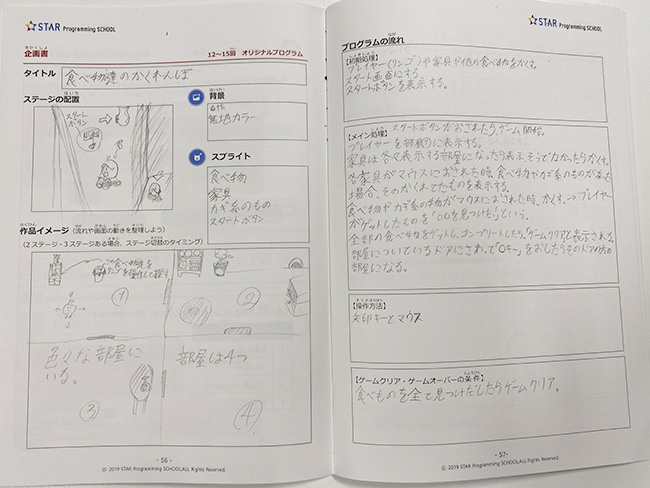 STAR Programming SCHOOL
企画書
きかくしょ
12〜15回 オリジナルプログラム
タイトル
食べ物達のかくれんぼ
ステージの配置
はいち
スタート
ボタン
背景
はいけい
自作
無地カラー
スプライト
食べ物
家具
カギ系のもの
スタートボタン
作品イメージ (流れや画面の動きを整理しよう)
(2ステージ・3ステージある場合、ステージ切替のタイミング)
①
②
色々な部屋に
いる。
③
部屋は4つ
④
- 56 -
© 2019 STAR Programming SCHOOL.All Rights Reserved.
STAR Programming SCHOOL
プログラムの流れ
【初期処理】
プレイヤー(リンゴ)や家具や他の食べ物をかくす。
スタート画面にする。
スタートボタンを表示する。
【メイン処理】
スタートボタンがおされたら、ゲーム開始。
プレイヤーを部屋1に表示する。
家具は各々表示する部屋になったら表示、そうでなかったらかくす。
各家具がマウスにおされた時、食べ物やカギ系のものがあった
場合、そのかくれてたものを表示する。
食べ物やカギ系の物がマウスにおされた時、かくす。→プレイヤー
がゲットしたものを「〇〇を見つけた」という。
全部の食べ物をゲットし、コンプリートしたら、「ゲームクリア」と表示される。
部屋についているドアにさわって「〇キー」をおしたらそのドアの方の
部屋になる。
【操作方法】
矢印キーとマウス
【ゲームクリア・ゲームオーバーの条件】
食べものを全て見つけだしたらゲームクリア。
- 57 -
© 2019 STAR Programming SCHOOL.All Rights Reserved.